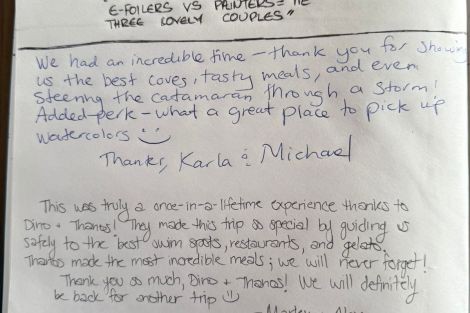 E-FOILERS VS PAINTERS=
THREE LOVELY COUPLES"
We had an incredible time - thank you for showing
us the best coves, tasty meals, and even
steering the catamaran through a storm!
Added perk - what a great place to pick up
watercolors
Thanks, Karla & Michael
This was truly a once-in-a-lifetime experience thanks to
Dino + Thanos! They made this trip so special by guiding us
safely to the best swim spots, restaurants, and gelato.
Thanos made the most incredible meals; we will never forget!
Thank you so much, Dino + Thanos! We will definitely
be back for another trip